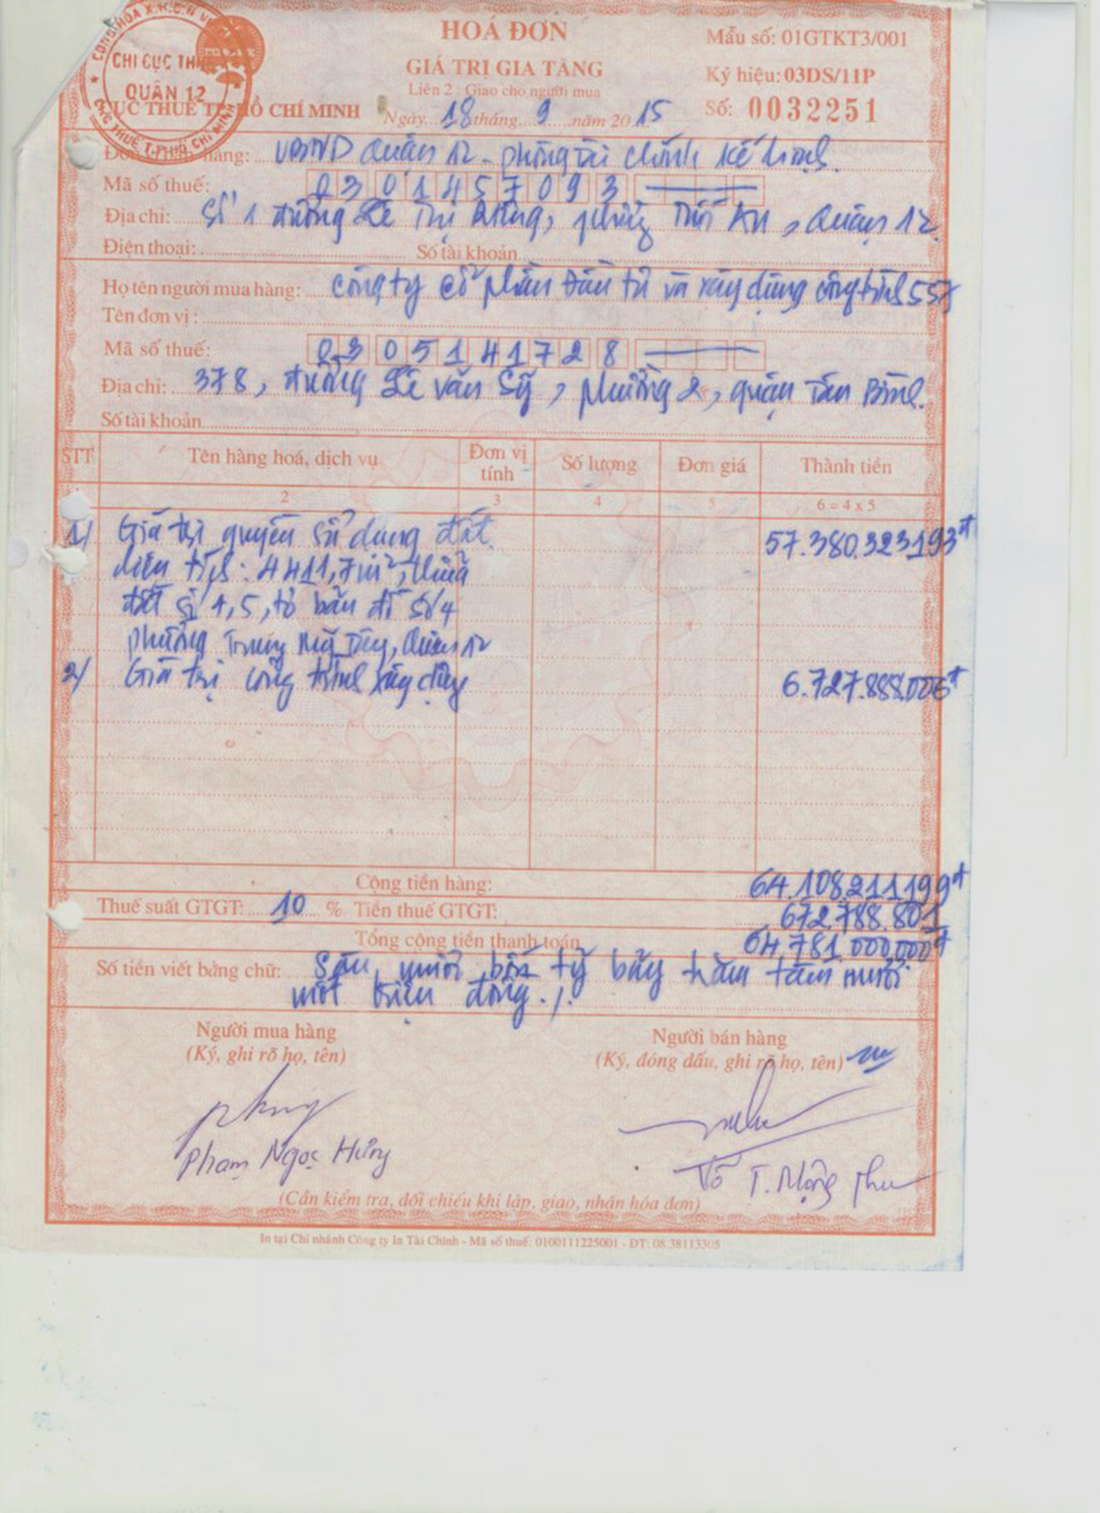 HOÁ ĐƠN
GIÁ TRỊ GIA TĂNG
Liên 2: Giao cho người mua
Mẫu số: 01GTKT3/001
Ký hiệu: 03DS/11P
Số: 0032251
CHI CỤC THUẾ
QUẬN 12
CỤC THUẾ TP. HỒ CHÍ MINH
Ngày 18 tháng 9 năm 2015
hàng: UBND Quận 12 - phòng Tài chính Kế hoạch
Mã số thuế: 0301457093
Địa chỉ: Số 1 đường Lê Thị Riêng, phường Thới An, Quận 12.
Điện thoại: Số tài khoản
Họ tên người mua hàng: Công ty cổ phần Đầu tư và xây dựng công trình 557
Tên đơn vị :
Mã số thuế: 0305141728
Địa chỉ: 378, đường Lê Văn Sỹ, phường 2, quận Tân Bình.
Số tài khoản
STT Tên hàng hoá, dịch vụ Đơn vị tính Số lượng Đơn giá Thành tiền
2 3 4 5 6 = 4 x 5
1/ Giá trị quyền sử dụng đất 57.380.323.193đ
diện tích: 4411,7m², thửa
đất số 4,5, tờ bản đồ số 4
phường Trung Mỹ Tây, Quận 12
2/ Giá trị công trình xây dựng 6.727.888.006đ
Cộng tiền hàng: 64.108.211.199đ
Thuế suất GTGT: 10 % Tiền thuế GTGT: 672.788.801
Tổng cộng tiền thanh toán 64.781.000.000đ
Số tiền viết bằng chữ: Sáu mươi bốn tỷ bảy trăm tám mươi
một triệu đồng./.
Người mua hàng
(Ký, ghi rõ họ, tên)
Người bán hàng
(Ký, đóng dấu, ghi rõ họ, tên)
Phạm Ngọc Hưng
Võ T. Mộng Thu
(Cần kiểm tra, đối chiếu khi lập, giao, nhận hóa đơn)
In tại Chi nhánh Công ty In Tài Chính - Mã số thuế: 0100111225001 - ĐT: 08.38113305